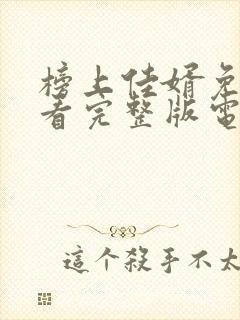 榜上佳婿免
看完整版電
這个殺手不太